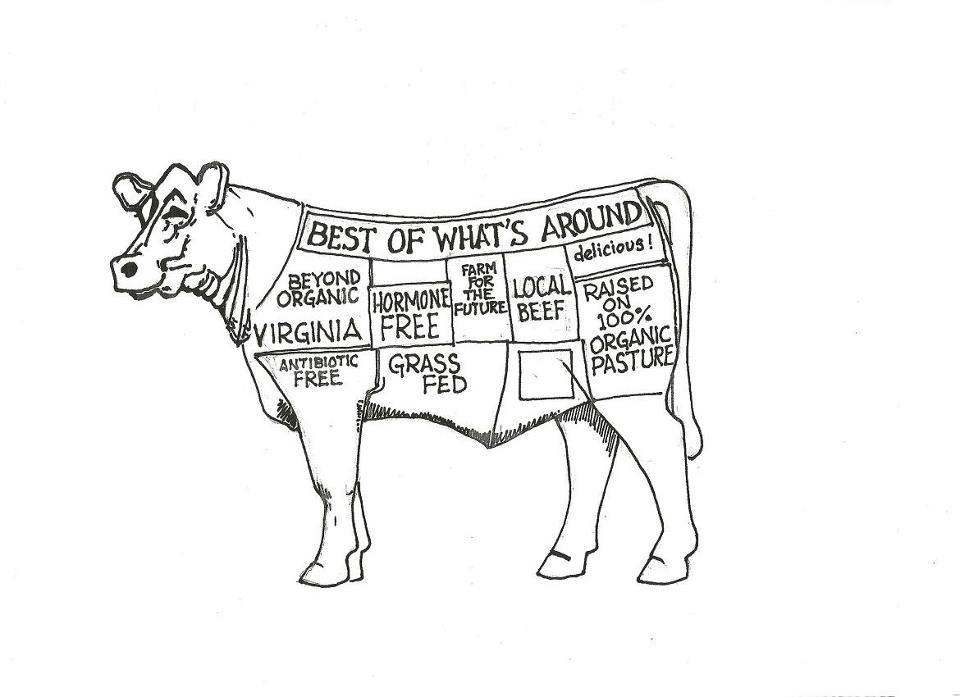 BEST OF WHAT'S AROUND
delicious!
BEYOND
ORGANIC
VIRGINIA
HORMONE
FREE
FARM
FOR
THE
FUTURE
LOCAL
BEEF
RAISED
ON
100%
ORGANIC
PASTURE
ANTIBIOTIC
FREE
GRASS
FED